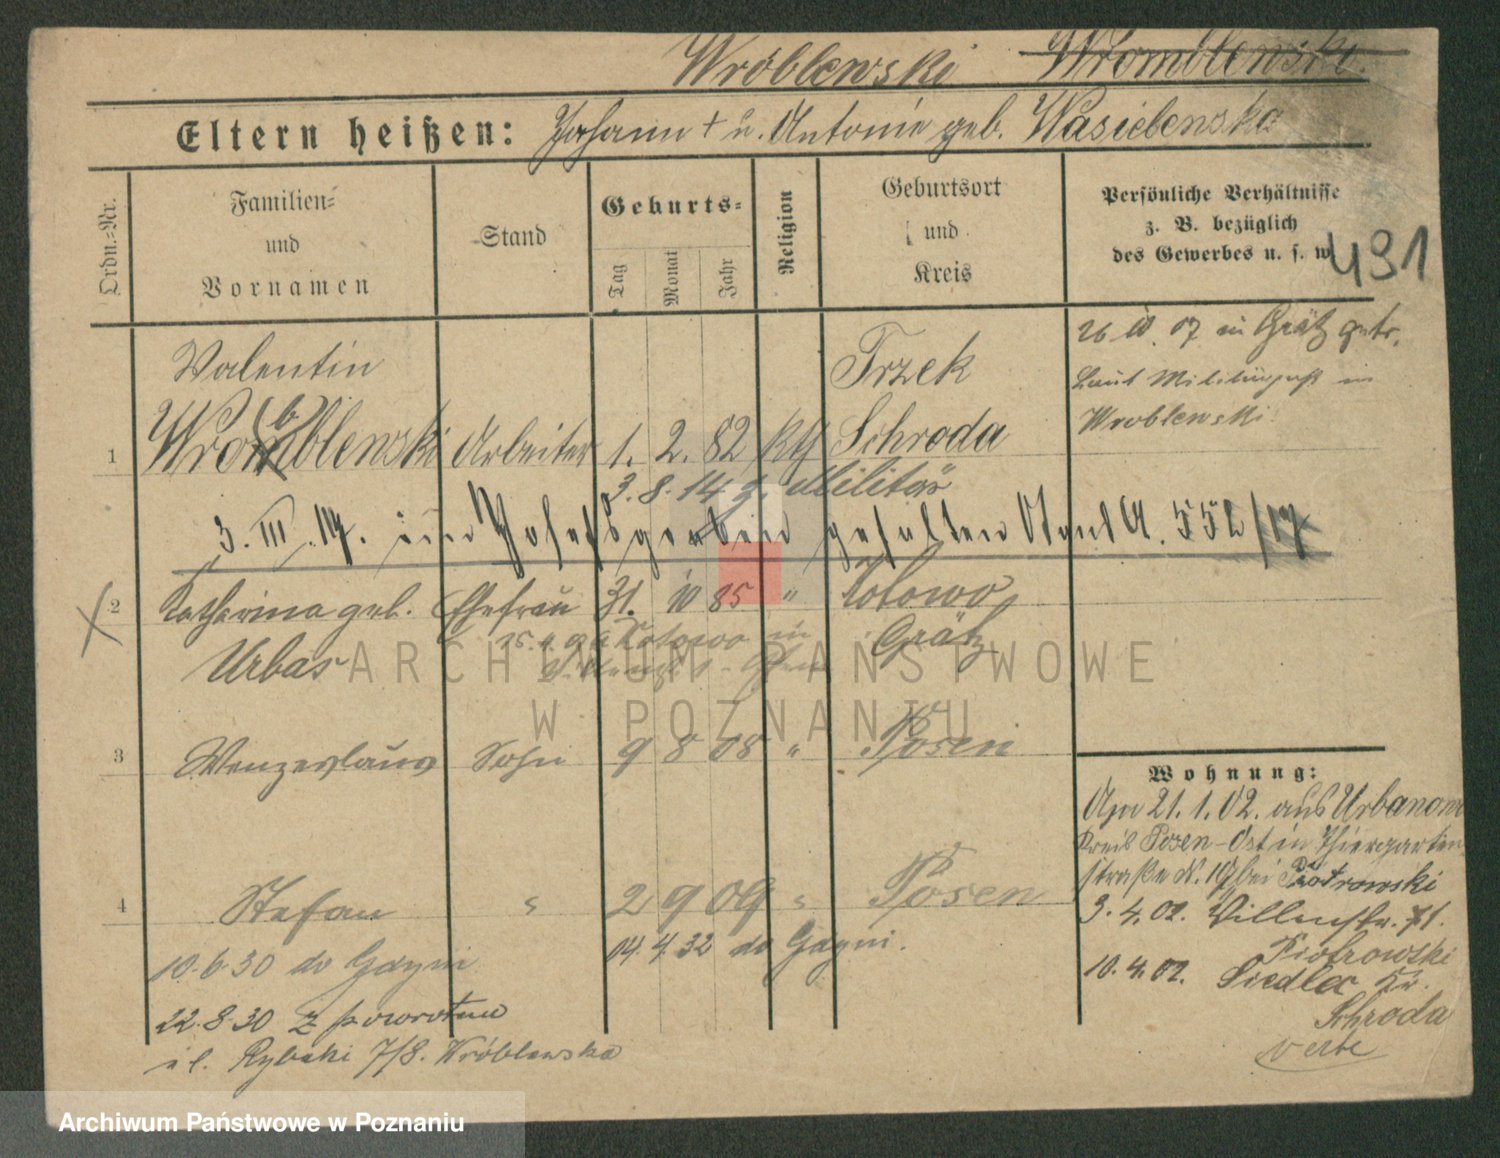 Wróblewski Wromblewski.
Eltern heißen: Johann + u. Antonie geb. Wasielewska
Ordn.-Nr.
Familien- und Vornamen
Stand
Geburts-
Tag Monat Jahr
Religion
Geburtsort und Kreis
Persönliche Verhältnisse
z. B. bezüglich
des Gewerbes u. s. w.
491
26. 07 in Grätz getr.
Laut Militärpaß
Wroblewski.
Valentin Trzek
1 Wromblewski Arbeiter 1. 2. 82 kth Schroda
b
3. 8. 14 z. Militär
3. III. 17. im gefallen Stand A. 552/17
2 Katharina geb. Ehefrau 31. 10 85 " Kotowo
Urbas Grätz
Kotowo in
3 Wenzeslaus Sohn 9 8 08 " Posen
4 Stefan " 2 9 09 " Posen
10.6.30 do Gdyni 04.4.32 do Gdyni.
22.8.30 z powrotem
ul. Rybaki 7/8. Wróblewska
Wohnung:
Am 21.1.02. aus Urbanowo
Kreis Posen-Ost in Thiergarten-
straße N. 19 bei Piotrowski
3.4.02. Villenstr. 71.
Piotrowski
10.4.02. Siedlec Kr.
Schroda
ARCHIWUM PAŃSTWOWE
W POZNANIU
Archiwum Państwowe w Poznaniu